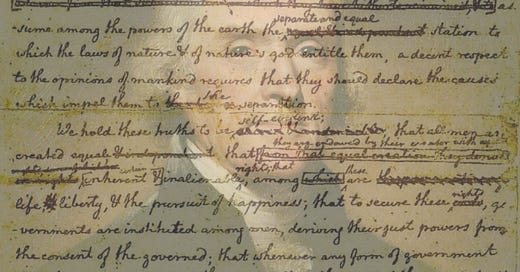 as
separate and equal
-sume among the powers of the earth the station to
which the laws of nature & of nature's god entitle them, a decent respect
to the opinions of mankind requires that they should declare the causes
the
which impel them to separation.
self evident;
We hold these truths to be that all men are
they are endowed by their creator with
created equal & independent that from that equal creation they derive
rights; that these
inherent & inalienable, among which are
rights
life & liberty, & the pursuit of happiness; that to secure these ends, go
vernments are instituted among men, deriving their just powers from
the consent of the governed; that whenever any form of government